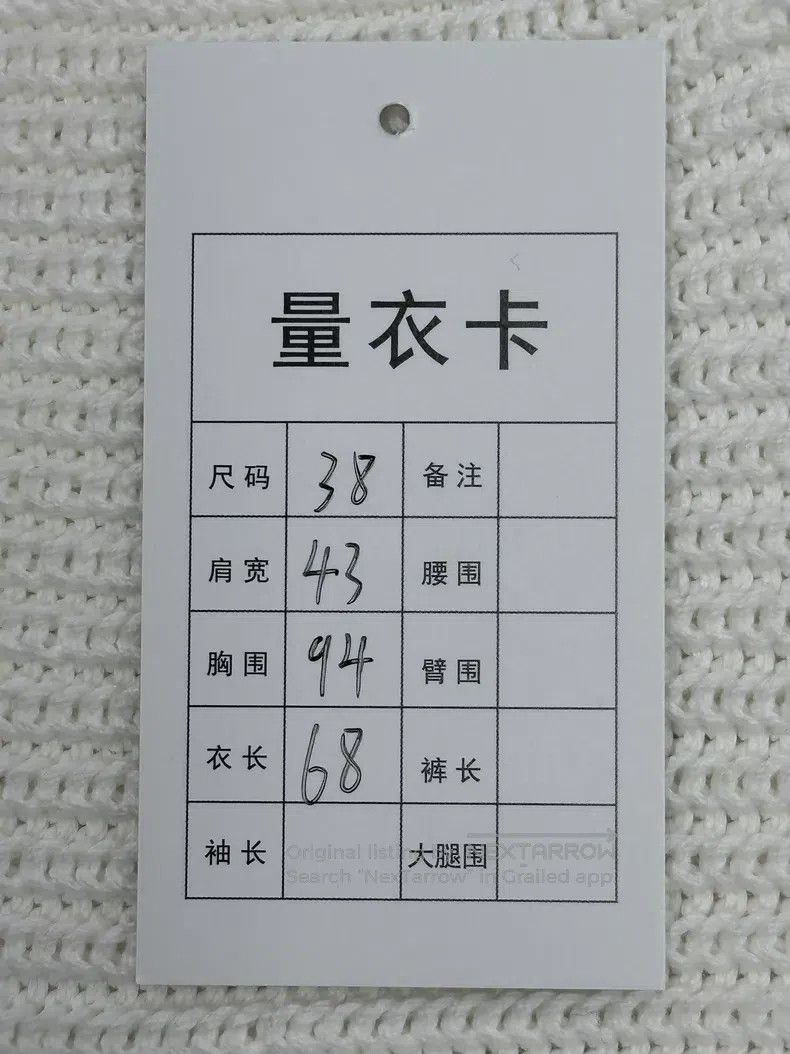 量衣卡
尺码 38 备注
肩宽 43 腰围
胸围 94 臂围
衣长 68 裤长
袖长 大腿围
Original listing NEXTARROW
Search "NexTarrow" in Grailed app